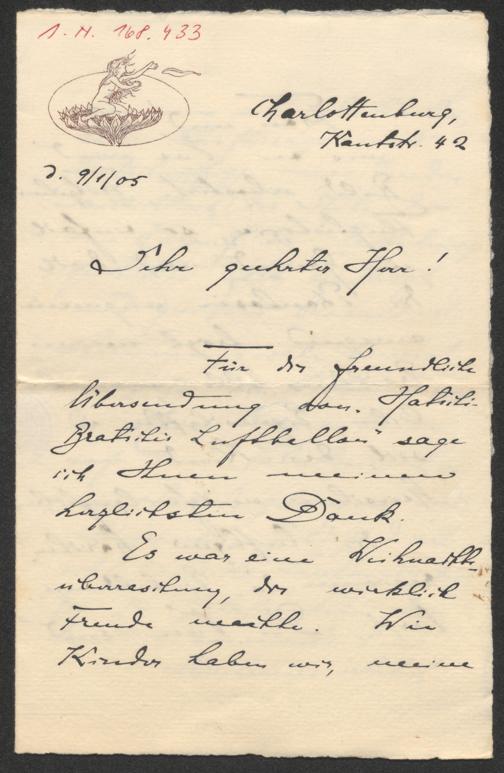 I. N. 168.433
Charlottenburg,
Kantstr. 42
d. 9/1/05
Sehr geehrter Herr!
Für die freundliche
Übersendung von „Hatschi-
Bratschis Luftballon" sage
ich Ihnen meinen
herzlichsten Dank.
Es war eine Weihnachts-
überraschung, die wirklich
Freude machte. Wie
Kinder haben wir, meine